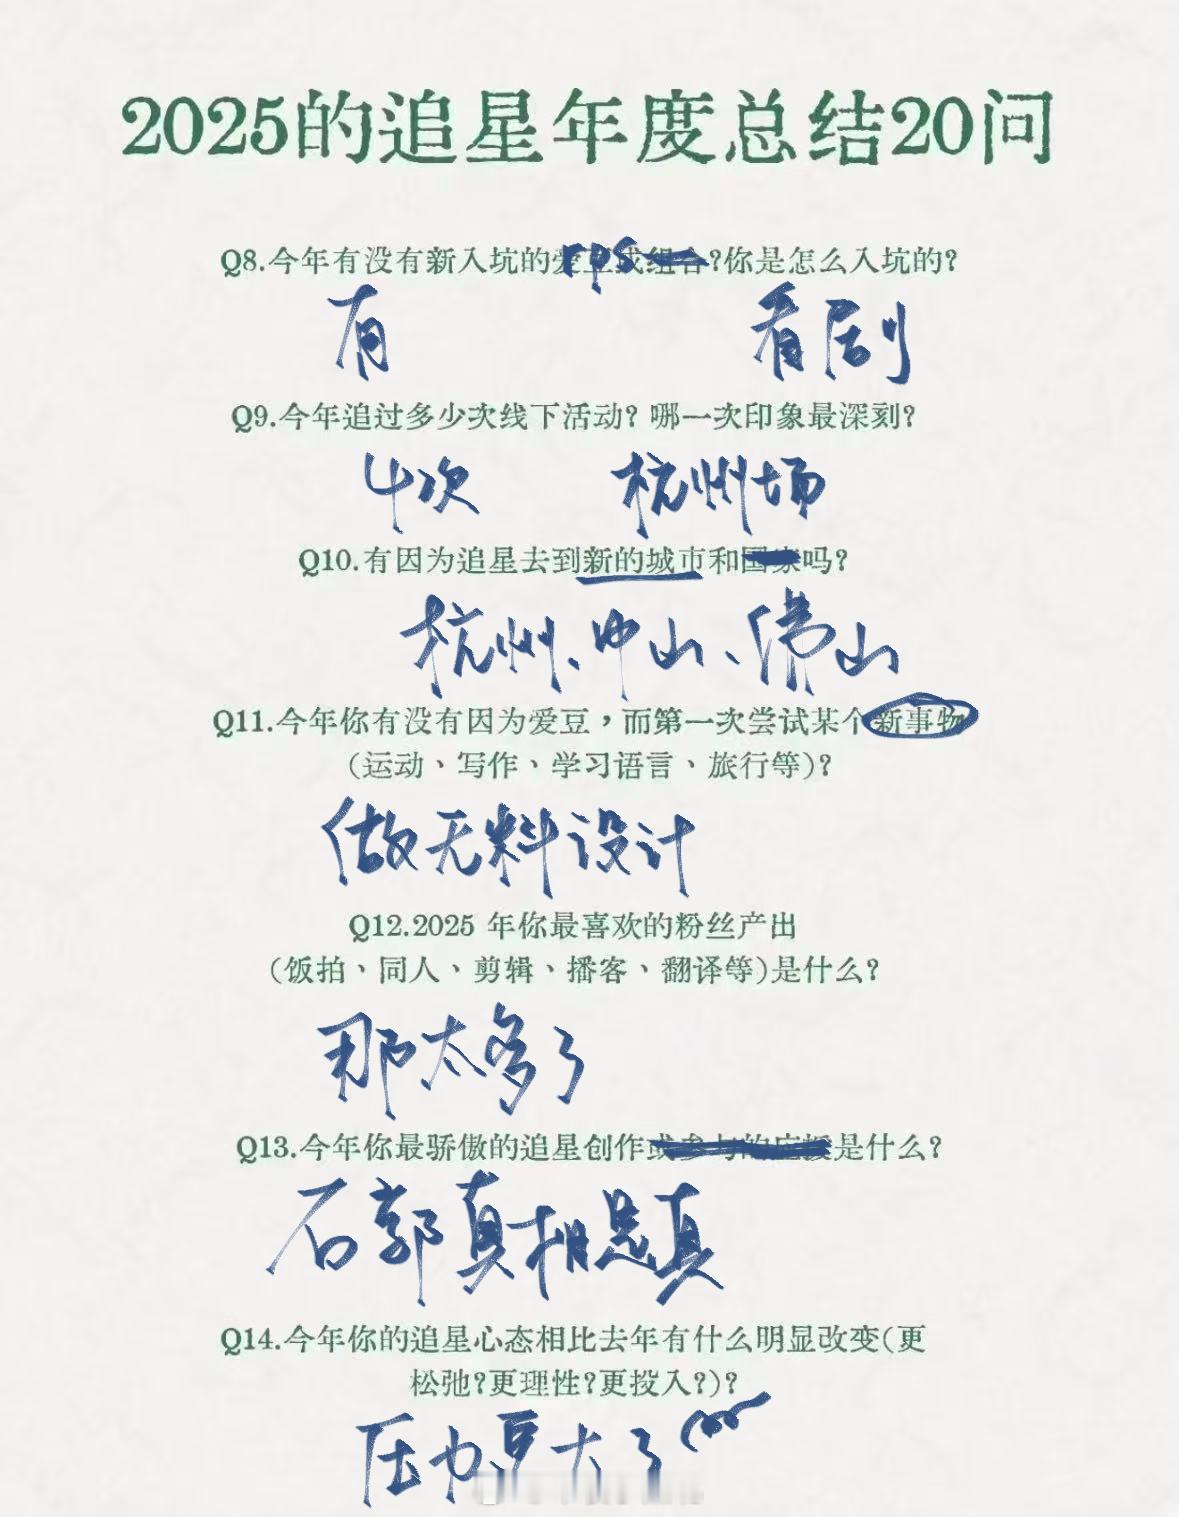 2025的追星年度总结20问
Q8.今年有没有新入坑的爱豆或组合?你是怎么入坑的?
rps
有 看剧
Q9.今年追过多少次线下活动? 哪一次印象最深刻?
4次 杭州场
Q10.有因为追星去到新的城市和国家吗?
杭州、中山、佛山
Q11.今年你有没有因为爱豆，而第一次尝试某个新事物
(运动、写作、学习语言、旅行等)?
做无料设计
Q12.2025 年你最喜欢的粉丝产出
(饭拍、同人、剪辑、播客、翻译等)是什么?
那太多了
Q13.今年你最骄傲的追星创作或参与的应援是什么?
石郭真相是真
Q14.今年你的追星心态相比去年有什么明显改变(更
松弛?更理性?更投入?)?
压力更大了